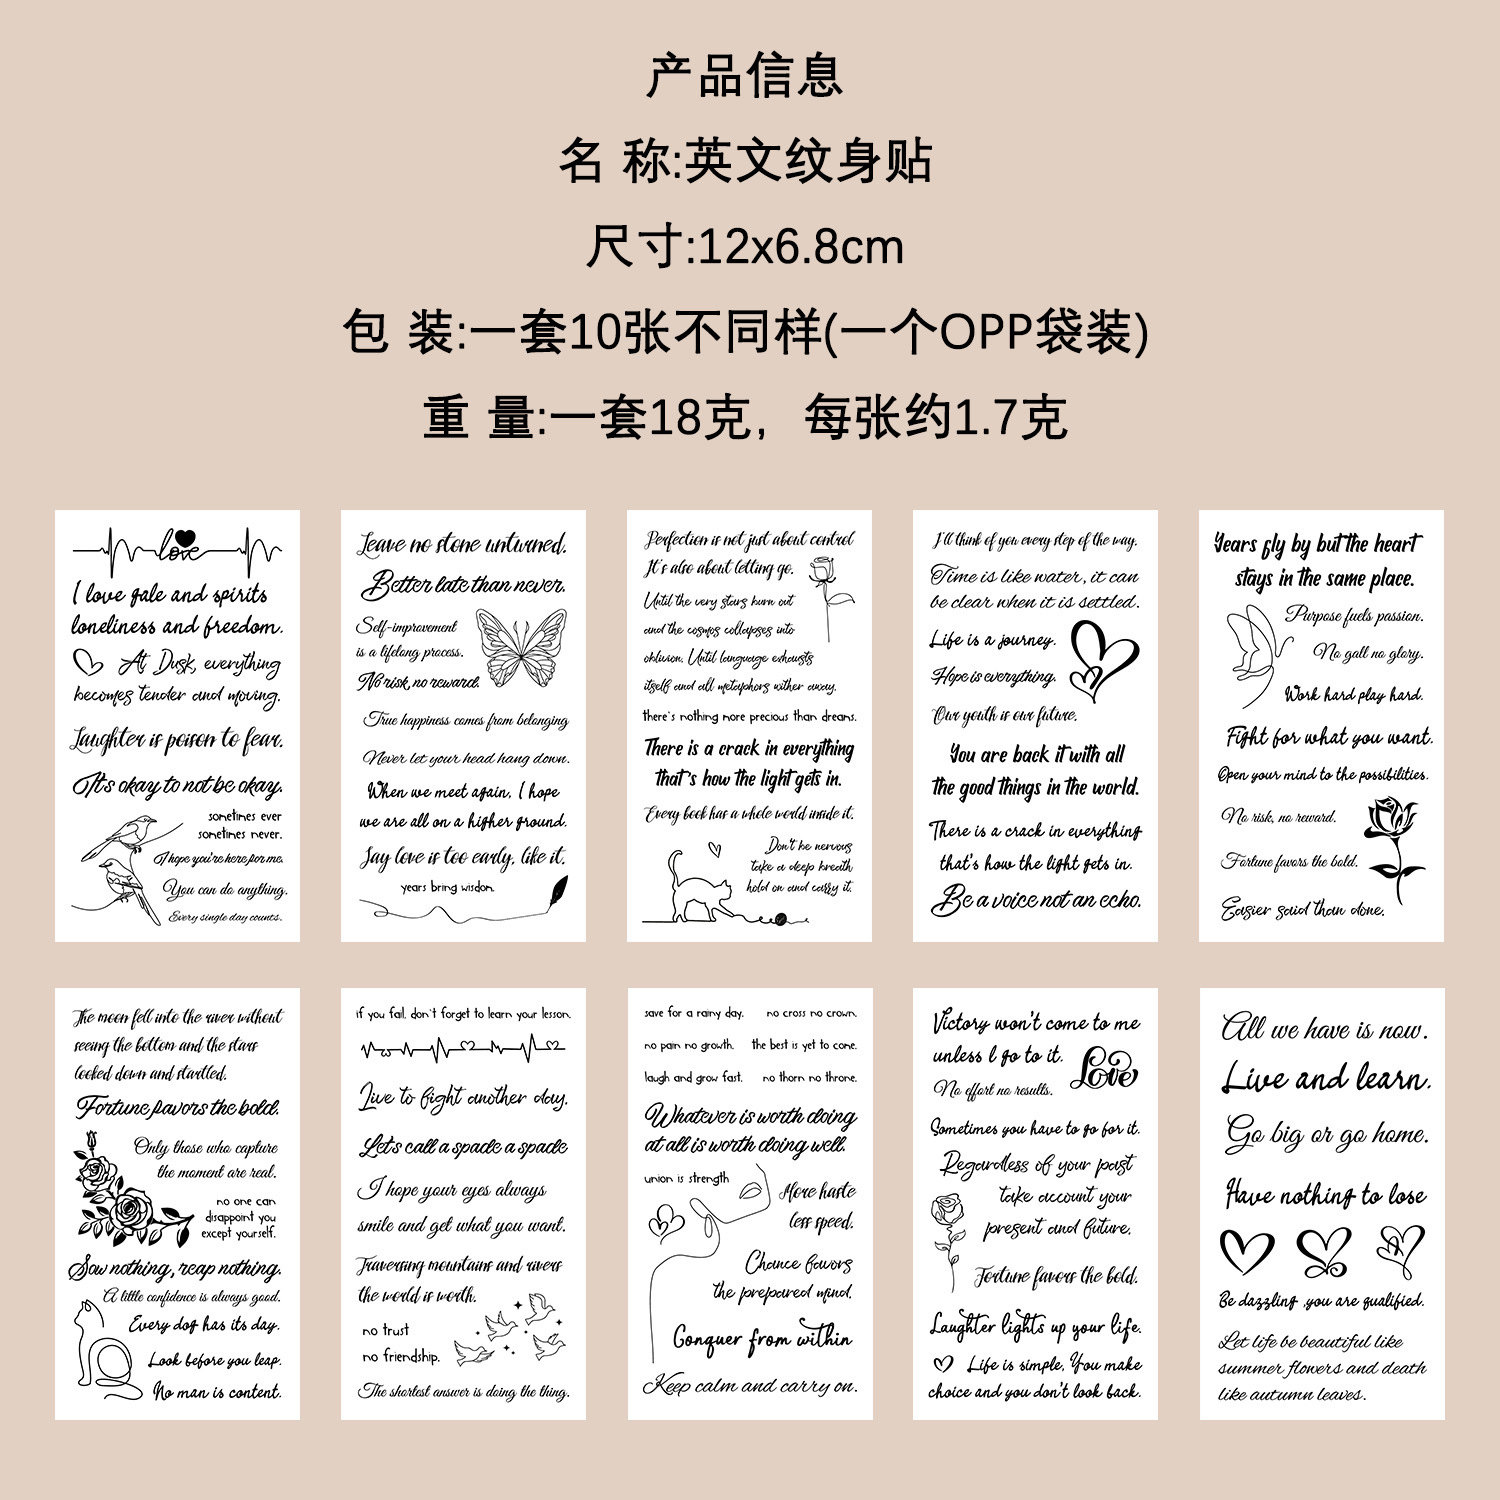 产品信息
名 称:英文纹身贴
尺寸:12x6.8cm
包 装:一套10张不同样(一个OPP袋装)
重 量:一套18克，每张约1.7克
love
I love gale and spirits
loneliness and freedom.
At Dusk, everything
becomes tender and moving.
Laughter is poison to fear.
It's okay to not be okay.
sometimes ever
sometimes never.
I hope you're here for me.
You can do anything.
Every single day counts.
Leave no stone unturned.
Better late than never.
Self-improvement
is a lifelong process.
No risk, no reward.
True happiness comes from belonging
Never let your head hang down.
When we meet again, I hope
we are all on a higher ground.
Say love is too early, like it.
years bring wisdon.
Perfection is not just about control
It's also about letting go.
Until the very stars burn out
and the cosmos collapses into
oblivion. Until language exhausts
itself and all metaphors wither away.
there's nothing more precious than dreams.
There is a crack in everything
that's how the light gets in.
Every book has a whole world inside it.
Don't be nervous
take a deep breath
hold on and carry it.
I'll think of you every step of the way.
Time is like water, it can
be clear when it is settled.
Life is a journey.
Hope is everything.
Our youth is our future.
You are back it with all
the good things in the world.
There is a crack in everything
that's how the light gets in.
Be a voice not an echo.
Years fly by but the heart
stays in the same place.
Purpose fuels passion.
No gall no glory.
Work hard play hard.
Fight for what you want.
Open your mind to the possibilities.
No risk, no reward.
Fortune favors the bold.
Easier said than done.
The moon fell into the river without
seeing the bottom and the stars
looked down and startled.
Fortune favors the bold.
Only those who capture
the moment are real.
no one can
disappoint you
except yourself.
Sow nothing, reap nothing.
A little confidence is always good.
Every dog has its day.
Look before you leap.
No man is content.
if you fail, don't forget to learn your lesson.
Live to fight another day.
Let's call a spade a spade
I hope your eyes always
smile and get what you want.
Traversing mountains and rivers
the world is worth.
no trust
no friendship.
The shortest answer is doing the thing.
save for a rainy day. no cross no crown.
no pain no growth. the best is yet to cone.
laugh and grow fast. no thorn no throne.
Whatever is worth doing
at all is worth doing well.
union is strength
More haste
less speed.
Chance favors
the prepared mind.
Conquer from within
Keep calm and carry on.
Victory won't come to me
unless l go to it.
Love
No effort no results.
Sometimes you have to go for it.
Regardless of your past
take account your
present and future.
Fortune favors the bold.
Laughter lights up your life.
Life is simple. You make
choice and you don't look back.
All we have is now.
Live and learn.
Go big or go home.
Have nothing to lose
Be dazzling ,you are qualified.
Let life be beautiful like
summer flowers and death
like autumn leaves.